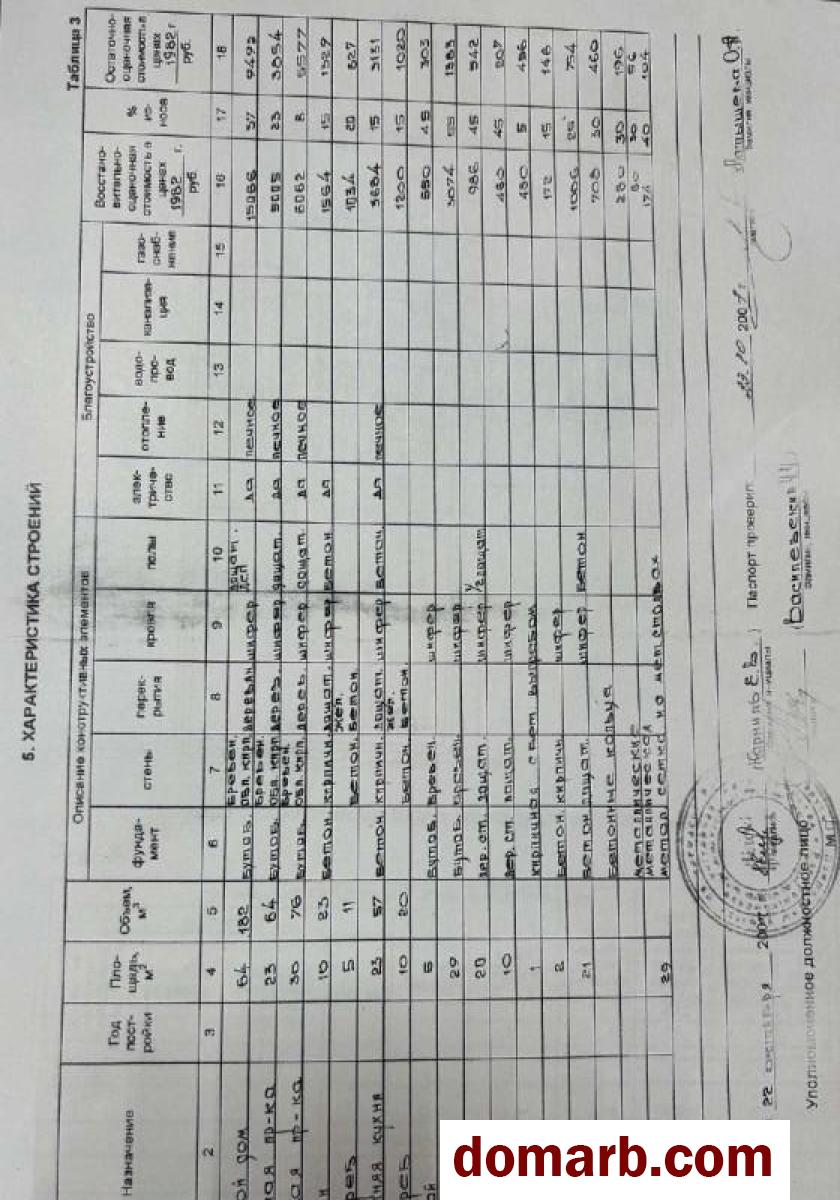 5. ХАРАКТЕРИСТИКА СТРОЕНИЙ
Таблица 3
Назначение
Год пост-ройки
Пло-щадь, м²
Объем, м³
Описание конструктивных элементов
фунда-мент
стены
перек-рытия
кровля
полы
Благоустройство
элек-триче-ство
отопле-ние
водо-про-вод
канализа-ция
газо-снаб-жение
Восстано-вительно-оценочная стоимость в ценах 1982 г. руб.
% из-носа
Остаточно-оценочная стоимость в ценах 1982 г руб.
2 3 4 5 6 7 8 9 10 11 12 13 14 15 16 17 18
ой дом 64 182 бутоб. бревен. обл. кирп. деревян. шифер дощат. дсп да печное 15066 37 9492
ая пр-ка 23 64 бутоб. бревен. обл. кирп. дерев. шифер дощат. да печное 5005 23 3854
ая пр-ка 30 76 бутоб. бревен. обл. кирп. дерев. шифер дощат. да печное 6062 8 5577
н 10 23 бетон. кирпичн. дощат. шифер бетон. да 1564 15 1329
реб 5 11 бетон. жел. бетон. 1034 20 827
няя кухня 23 57 бетон. кирпичн. дощат. шифер бетон. да печное 3684 15 3131
реб 10 20 бетон. жел. бетон. 1200 15 1020
ой 6 бутоб. бревен. шифер 550 45 303
29 бутоб. бревен. шифер 3074 55 1383
20 дер. ст. дощат. шифер 1/2 дощат 986 45 542
10 дер. ст. дощат. шифер 45
1 кирпичная с бет. выгребом 480 5 456
2 бетон. кирпичн. шифер 172 15 146
21 бетон дощат. шифер бетон 1006 25 754
бетонные кольца 708 30 460
металлические 280 30 196
металлическая 80 30 56
29 метал. сетка на мет. столбах 174 40 104
22 октября 200 Паспорт проверил: 22.10 2007 г.
Уполномоченное должностное лицо
М.П.
domarb.com